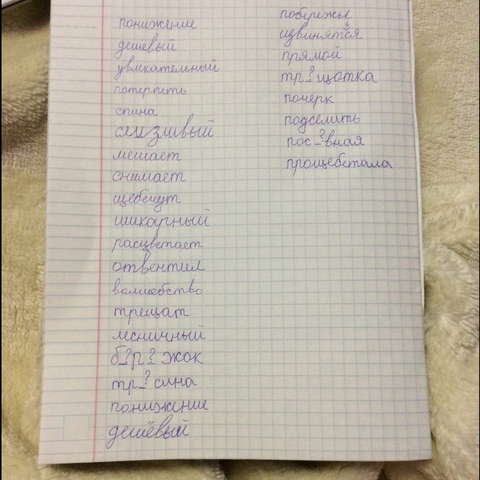 понижение
дешевый
увлекательный
потерпеть
спина
слизивый
мешает
снимает
щебечут
шикарный
расцветает
отвентил
волшебство
трещат
лесничный
б_?р_?жок
тр_?сина
понижение
дешёвый
побережье
извинятся
прямой
тр_?щотка
почерк
подселить
пос_?вная
прощебетала